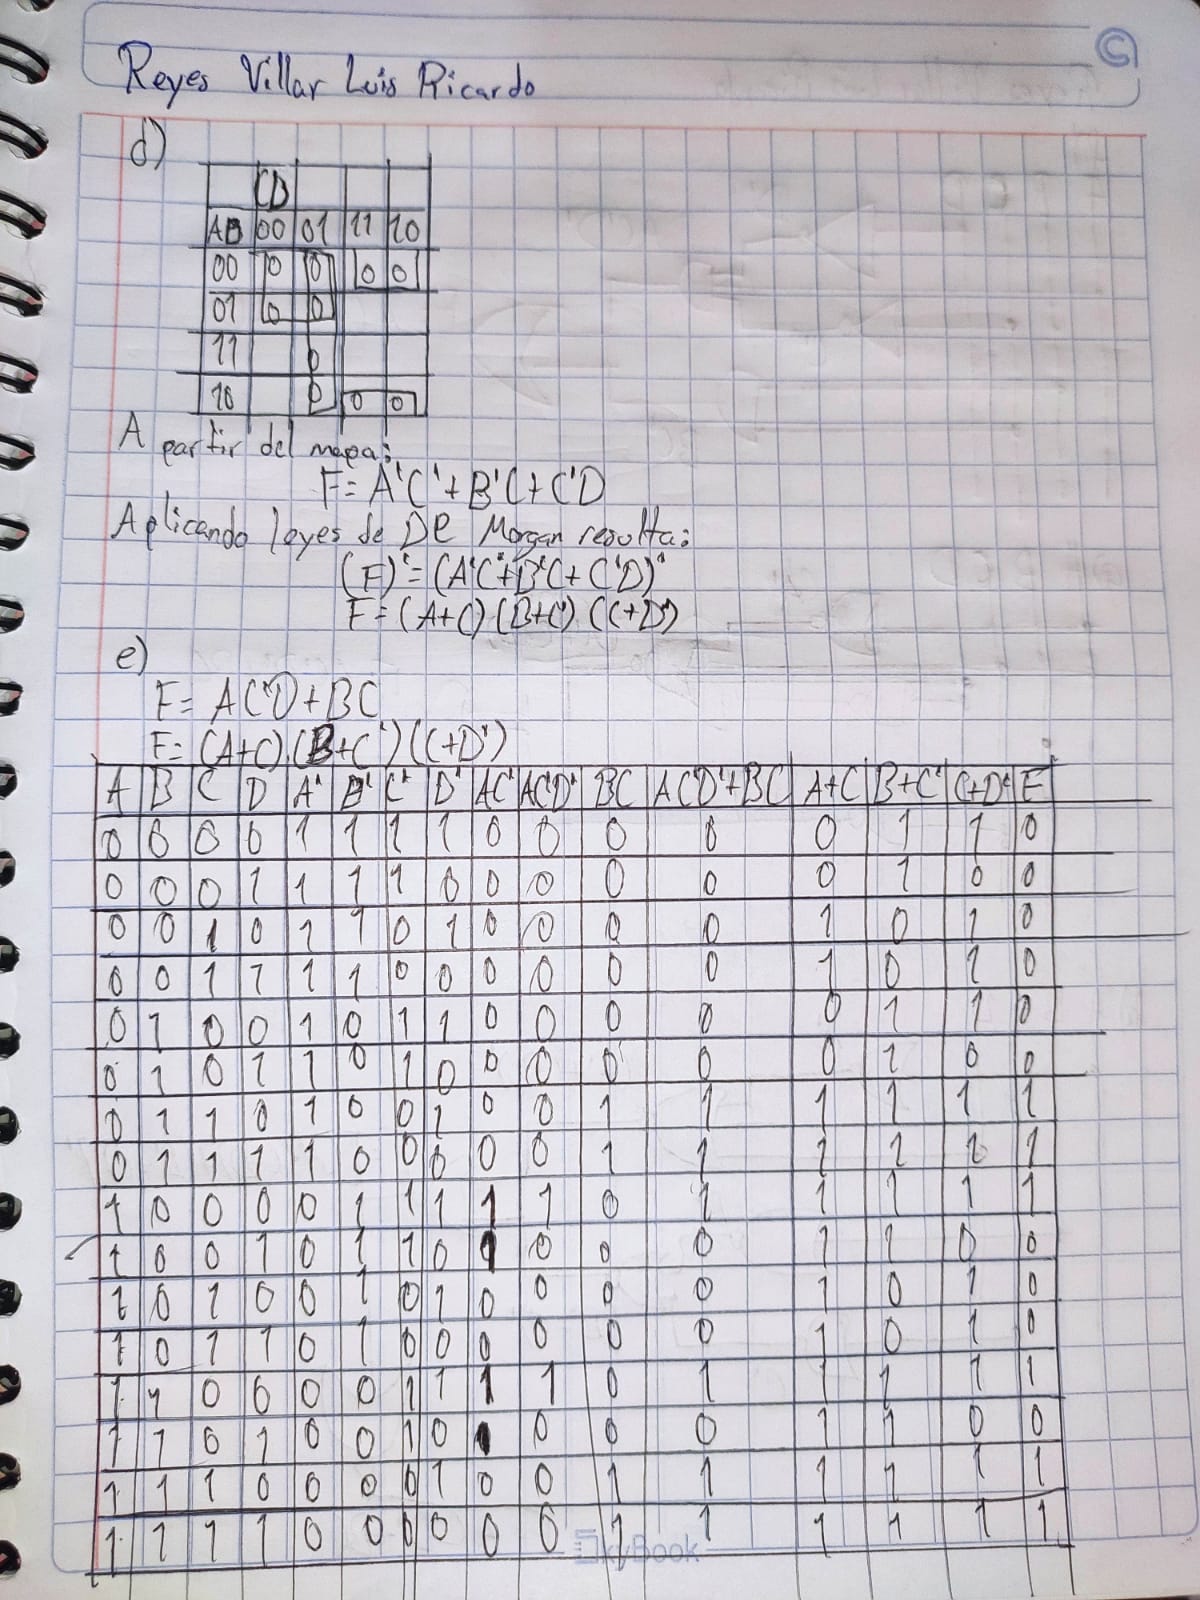 Reyes Villar Luis Ricardo
d)
CD
AB 00 01 11 10
00 0 0 0 0
01 0 0
11 0
10 0 0 0
A partir del mapa:
F= A'C'+B'C+C'D
Aplicando leyes de De Morgan resulta:
(F)'=(A'C'+B'C+C'D)'
F=(A+C)(B+C')(C+D')
e)
F= AC'D'+BC
F= (A+C).(B+C')(C+D')
A B C D A' B' C' D' AC' AC'D' BC AC'D'+BC A+C B+C' C+D' F
0 0 0 0 1 1 1 1 0 0 0 0 0 1 1 0
0 0 0 1 1 1 1 0 0 0 0 0 0 1 0 0
0 0 1 0 1 1 0 1 0 0 0 0 1 0 1 0
0 0 1 1 1 1 0 0 0 0 0 0 1 0 1 0
0 1 0 0 1 0 1 1 0 0 0 0 0 1 1 0
0 1 0 1 1 0 1 0 0 0 0 0 0 1 0 0
0 1 1 0 1 0 0 1 0 0 1 1 1 1 1 1
0 1 1 1 1 0 0 0 0 0 1 1 1 1 1 1
1 0 0 0 0 1 1 1 1 1 0 1 1 1 1 1
1 0 0 1 0 1 1 0 1 0 0 0 1 1 0 0
1 0 1 0 0 1 0 1 0 0 0 0 1 0 1 0
1 0 1 1 0 1 0 0 0 0 0 0 1 0 1 0
1 1 0 0 0 0 1 1 1 1 0 1 1 1 1 1
1 1 0 1 0 0 1 0 1 0 0 0 1 1 0 0
1 1 1 0 0 0 0 1 0 0 1 1 1 1 1 1
1 1 1 1 0 0 0 0 0 0 1 1 1 1 1 1
SkyBook